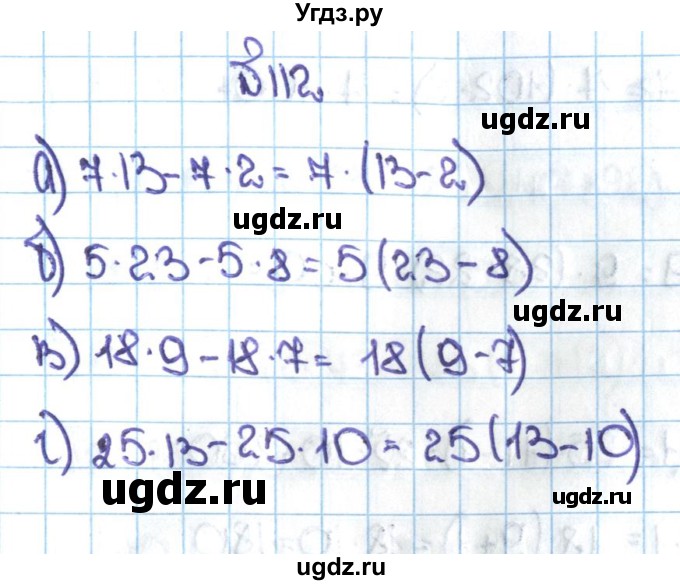 Угдз.ру
№112
ugdz.ru
а) 7·13-7·2=7·(13-2)
ugdz.ru
б) 5·23-5·8=5(23-8)
ugdz.ru
в) 18·9-18·7= 18(9-7)
ugdz.ru
г) 25·13-25·10=25(13-10)
ugdz.ru ugdz.ru
ugdz.ru
ugdz.ru